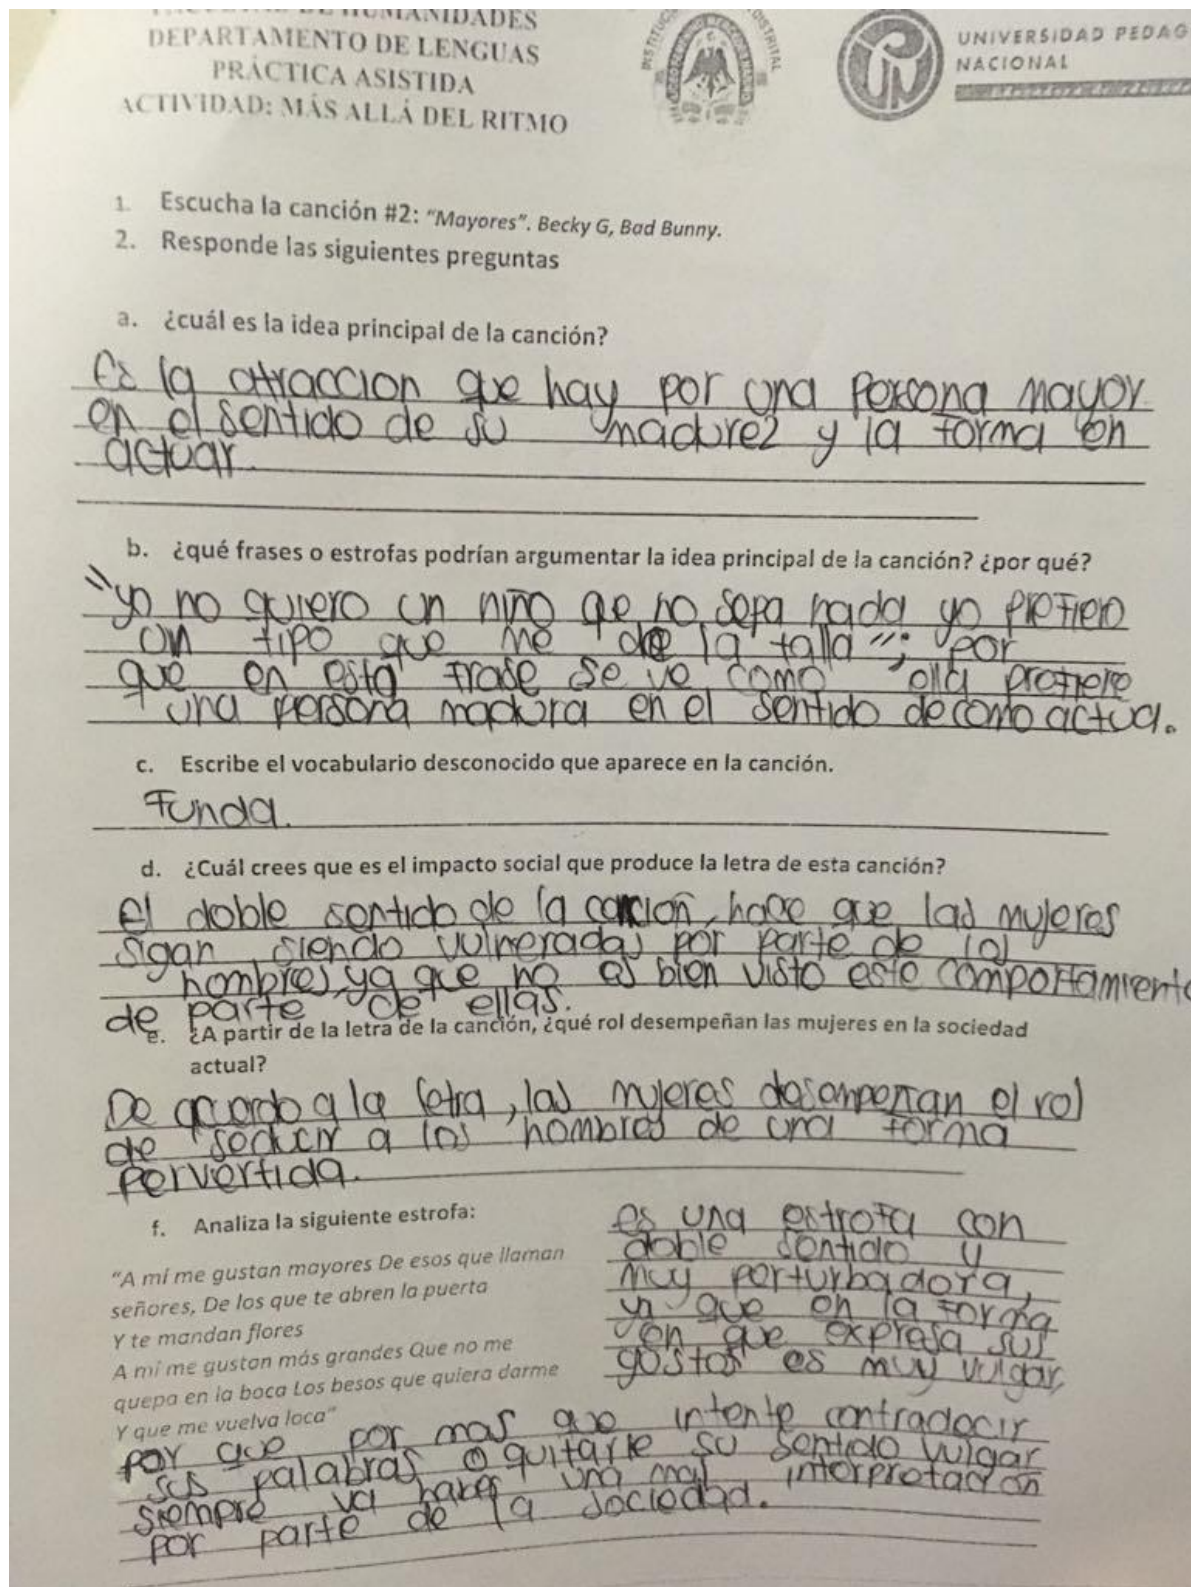 DE HUMANIDADES
DEPARTAMENTO DE LENGUAS
PRÁCTICA ASISTIDA
ACTIVIDAD: MÁS ALLÁ DEL RITMO
DISTRITAL
UNIVERSIDAD PEDAG
NACIONAL
1. Escucha la canción #2: "Mayores". Becky G, Bad Bunny.
2. Responde las siguientes preguntas
a. ¿cuál es la idea principal de la canción?
Es la atraccion que hay por una Persona mayor
en el sentido de su madurez y la forma en
actuar.
b. ¿qué frases o estrofas podrían argumentar la idea principal de la canción? ¿por qué?
"yo no quiero un niño qe no sepa nada yo prefiero
un tipo que me de la talla"; por
que en esta frase se ve como ella prefiere
una persona madura en el sentido de como actua.
c. Escribe el vocabulario desconocido que aparece en la canción.
Funda.
d. ¿Cuál crees que es el impacto social que produce la letra de esta canción?
El doble sentido de la canción, hace que las mujeres
sigan siendo vulneradas por parte de los
hombres, ya que no es bien visto este comportamiento
de parte de ellas.
e. ¿A partir de la letra de la canción, ¿qué rol desempeñan las mujeres en la sociedad
actual?
De acuerdo a la letra, las mujeres desempeñan el rol
de seducir a los hombres de una forma
pervertida.
f. Analiza la siguiente estrofa:
"A mí me gustan mayores De esos que llaman
señores, De los que te abren la puerta
Y te mandan flores
A mí me gustan más grandes Que no me
quepa en la boca Los besos que quiera darme
Y que me vuelva loca"
es una estrofa con
doble sentido y
muy perturbadora,
ya que en la forma
en que expresa sus
gustos es muy vulgar,
por que por mas que intente contradecir
sus palabras o quitarle su sentido vulgar
siempre va haber una mal interpretación
por parte de la sociedad.